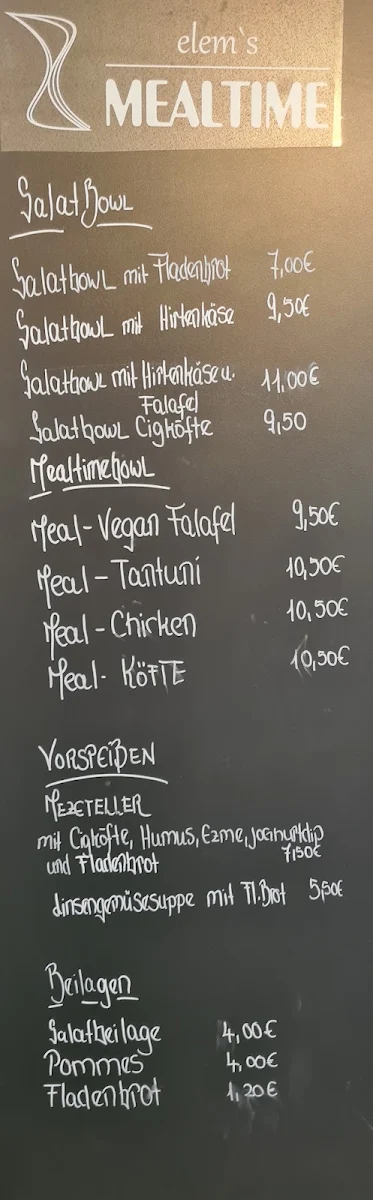 elem`s
MEALTIME
Salat Bowl
Salatbowl mit Fladenbrot 7,00€
Salatbowl mit Hirtenkäse 9,50€
Salatbowl mit Hirtenkäse u. 11,00€
Falafel
Salatbowl Cigköfte 9,50
Mealtimebowl
Meal-Vegan Falafel 9,50€
Meal-Tantuni 10,50€
Meal-Chicken 10,50€
Meal- KöFTE 10,50€
VORSPEIßEN
MEZETELLER
mit Cigköfte, Humus, Ezme, Joghurtdip
und Fladenbrot 7,50€
Linsengemüsesuppe mit Fl.Brot 5,50€
Beilagen
Salatbeilage 4,00€
Pommes 4,00€
Fladenbrot 1,20€